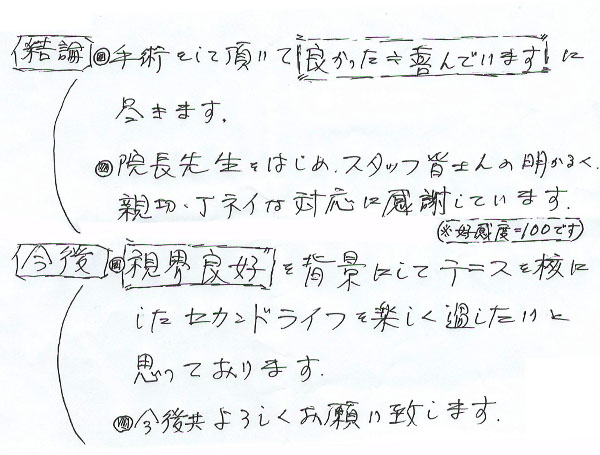 結論 ◎手術をして頂いて良かった≒喜んでいますに
尽きます。
◎院長先生をはじめ、スタッフ皆さんの明かるく、
親切・丁ネイな対応に感謝しています。
(※好感度=100です)
今後 ◎視界良好を背景にしてテニスを核に
したセカンドライフを楽しく過したいと
思っております。
◎今後共よろしくお願い致します。